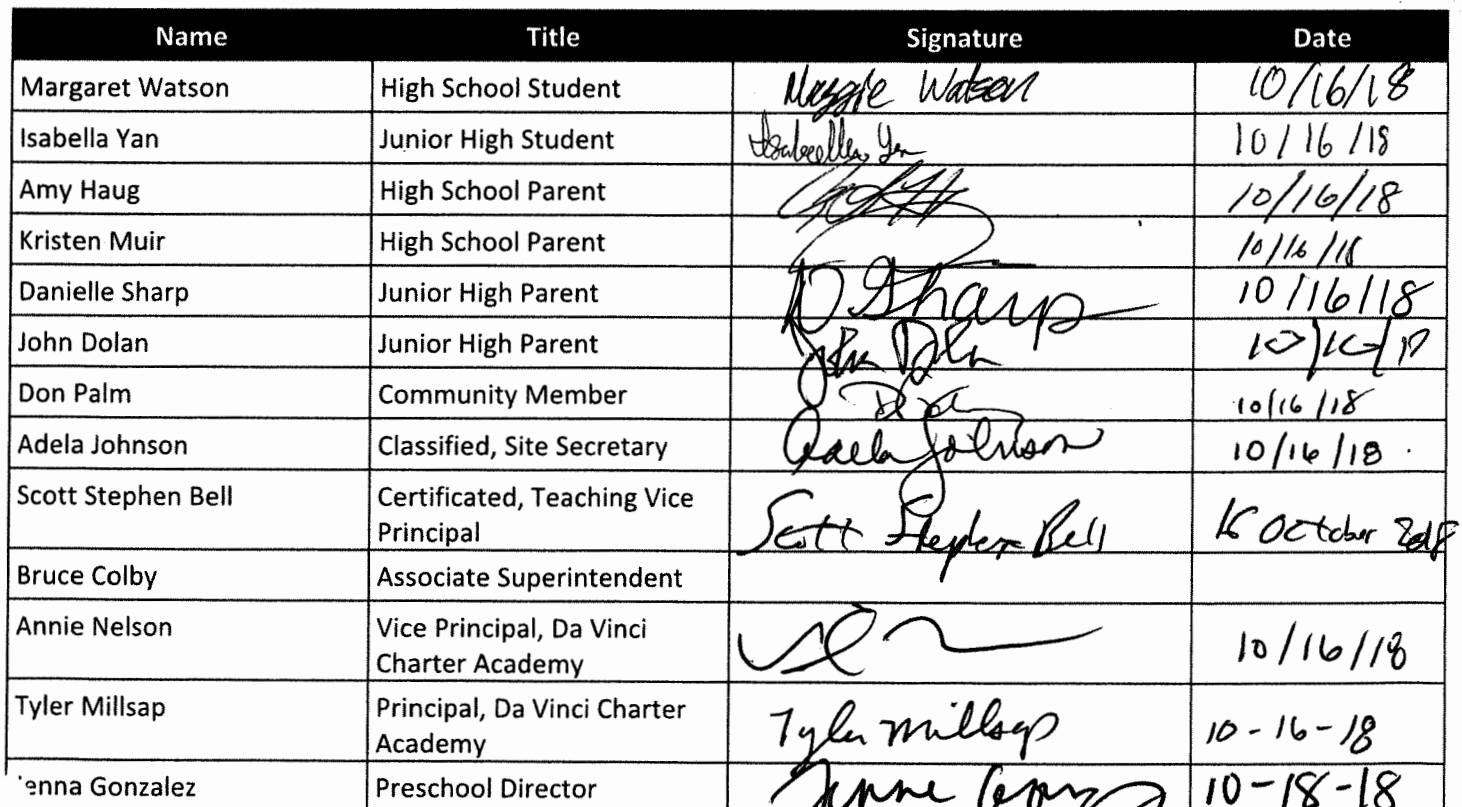 Name Title Signature Date
Margaret Watson High School Student Maggie Watson 10/16/18
Isabella Yan Junior High Student Isabella Yan 10/16/18
Amy Haug High School Parent 10/16/18
Kristen Muir High School Parent 10/16/18
Danielle Sharp Junior High Parent D Sharp 10/16/18
John Dolan Junior High Parent John Dolan
Don Palm Community Member 10/16/18
Adela Johnson Classified, Site Secretary Adela Johnson 10/16/18
Scott Stephen Bell Certificated, Teaching Vice
Principal Scott Stephen Bell 16 October 2018
Bruce Colby Associate Superintendent
Annie Nelson Vice Principal, Da Vinci
Charter Academy 10/16/18
Tyler Millsap Principal, Da Vinci Charter
Academy Tyler Millsap 10-16-18
enna Gonzalez Preschool Director 10-18-18